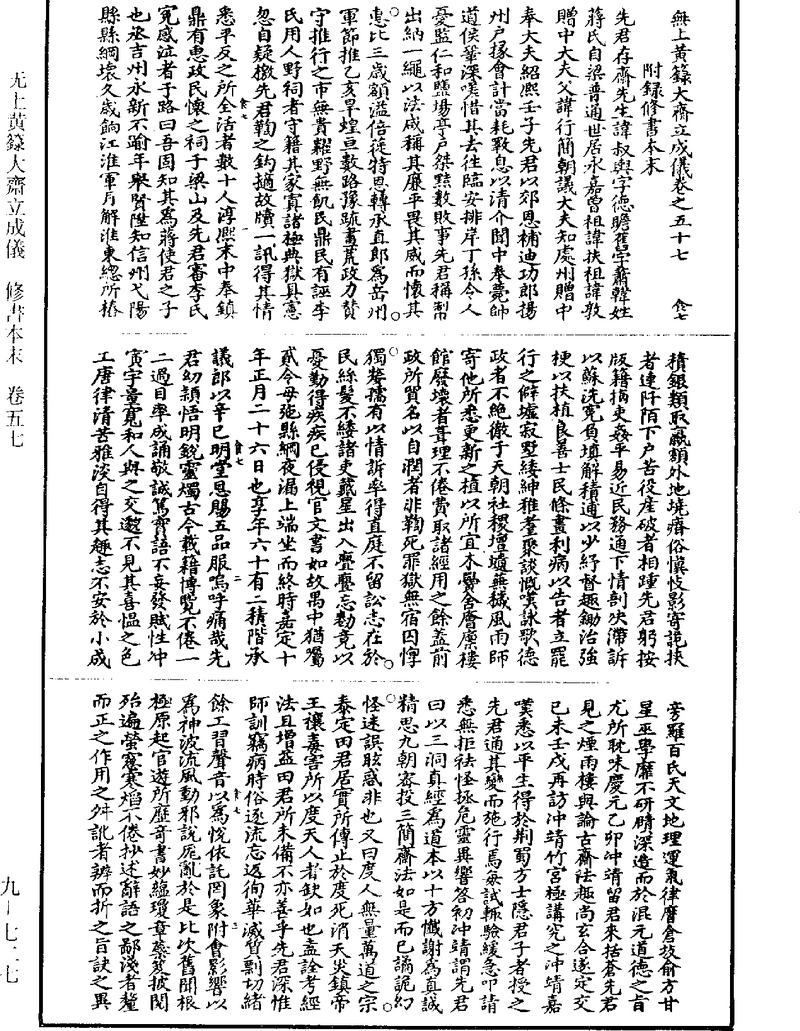 無上黃籙大齋立成儀卷之五十七 食七
附錄修書本末
先君存齋先生諱叔輿字德瞻舊字肅韓姓
蔣氏自梁普通世居永嘉曾祖諱扶祖諱敦
贈中大夫父諱行簡朝議大夫知處州贈中
奉大夫紹熙壬子先君以郊恩補迪功郎揚
州戶掾會計當耗斁息以清介聞中奉薨師
道侯鞏深嘆惜其去徃臨安排岸丁孫令人
憂監仁和鹽場亭戶桀黠數敗事先君稱掣
出納一繩以法咸稱其廉平畏其威而懷其
惠比三歲額溢倍徒特恩轉承直郎為岳州
軍節推乙亥旱蝗亘數路豫疏畫荒政力贊
守推行之市無貴糶野無飢民鼎民有誣李
民用人野祠者守籍其家寘諸極典獄具憲
忽自疑檄先君鞫之鈎擿故牘一訊得其情
悉平反之所全活者數十人淳熙末中奉鎮
鼎有惠政民懷之祠于梁山及先君審李氏
冤感泣者于路曰吾固知其為蔣使君之子
也丞吉州永新不踰年舉賢陞知信州弋陽
縣縣綱壞久歲餉江淮軍月解淮東總所樁
積銀類取贏額外地墝瘠俗慎忮影寄詭挾
者連阡陌下戶苦役產破者相踵先君躬按
版籍摘吏姦平易近民務通下情剖决滯訴
以蘇洗冤負填解積逋以少紓督趣鋤治強
梗以扶植良善士民條畫利病以告者立罷
行之僻墟寂墅縷紳稚耋聚談慨嘆詠歌德
政者不絕徹于天朝社稷壇壝蕪穢風雨師
寄他所悉更新之植以所宜木黌舍廥廩樓
館廢壞者葺理不倦費取諸經用之餘蓋前
政所貿名以自潤者非鞫死罪獄無宿囚惸
獨嫠孺有以情訴率得直庭不留訟志在於
民絲髮不緩諸吏戴星出入亹亹忘勌竟以
憂勤得疾疾已侵視官文書如故禺中猶囑
貳令母弛縣綱夜漏上端坐而終時嘉定十
年正月二十六日也享年六十有二積階承
議郎以辛巳明堂恩賜五品服嗚呼痛哉先
君幼穎悟明銳靈燭古今載籍博覽不倦一
二過目率成誦敬誠篤實語不妄發賦性冲
寅宇量寬和人與之交邈不見其喜慍之色
工唐律清苦雅淡自得其趣志不安於小成
旁羅百氏天文地理運氣律曆倉坡俞方甘
星巫學靡不研賾深造而於混元道德之旨
尤所耽味慶元乙卯冲靖留君來括蒼先君
見之煙雨樓與論古齋法趣尚玄合遂定交
已未壬戌再訪冲靖竹宮極講究之冲靖嘉
嘆悉以平生得於荆蜀方士隱君子者授之
先君通其變而施行焉每試輒驗緩急叩請
悉無拒祛怪拯危靈異響答初冲靖謂先君
曰以三洞真經為道本以十方懺謝為真誠
精思九朝密投三簡齋法如是而已譎詭幻
怪迷誤眩惑非也又曰度人無量萬道之宗
泰定田君居實所傳止於度死消天災鎮帝
王禳毒害所以度天人者缺如也盍詮考經
法且增益田君所未備不亦善乎先君深惟
師訓竊病時俗逐流忘返徇華滅質剽切緒
餘工習聲音以為悅依託罔象附會影響以
為神波流風動邪說厖亂於是比次舊聞根
極原起官遊所歷奇書妙蘊瓊章蘂笈披閱
殆遍螢窻寒熖不倦抄述辭語之鄙淺者釐
而正之作用之舛訛者辨而折之旨訣之異
无上黃籙大齋立成儀 修書本末 卷五七
九—七二七